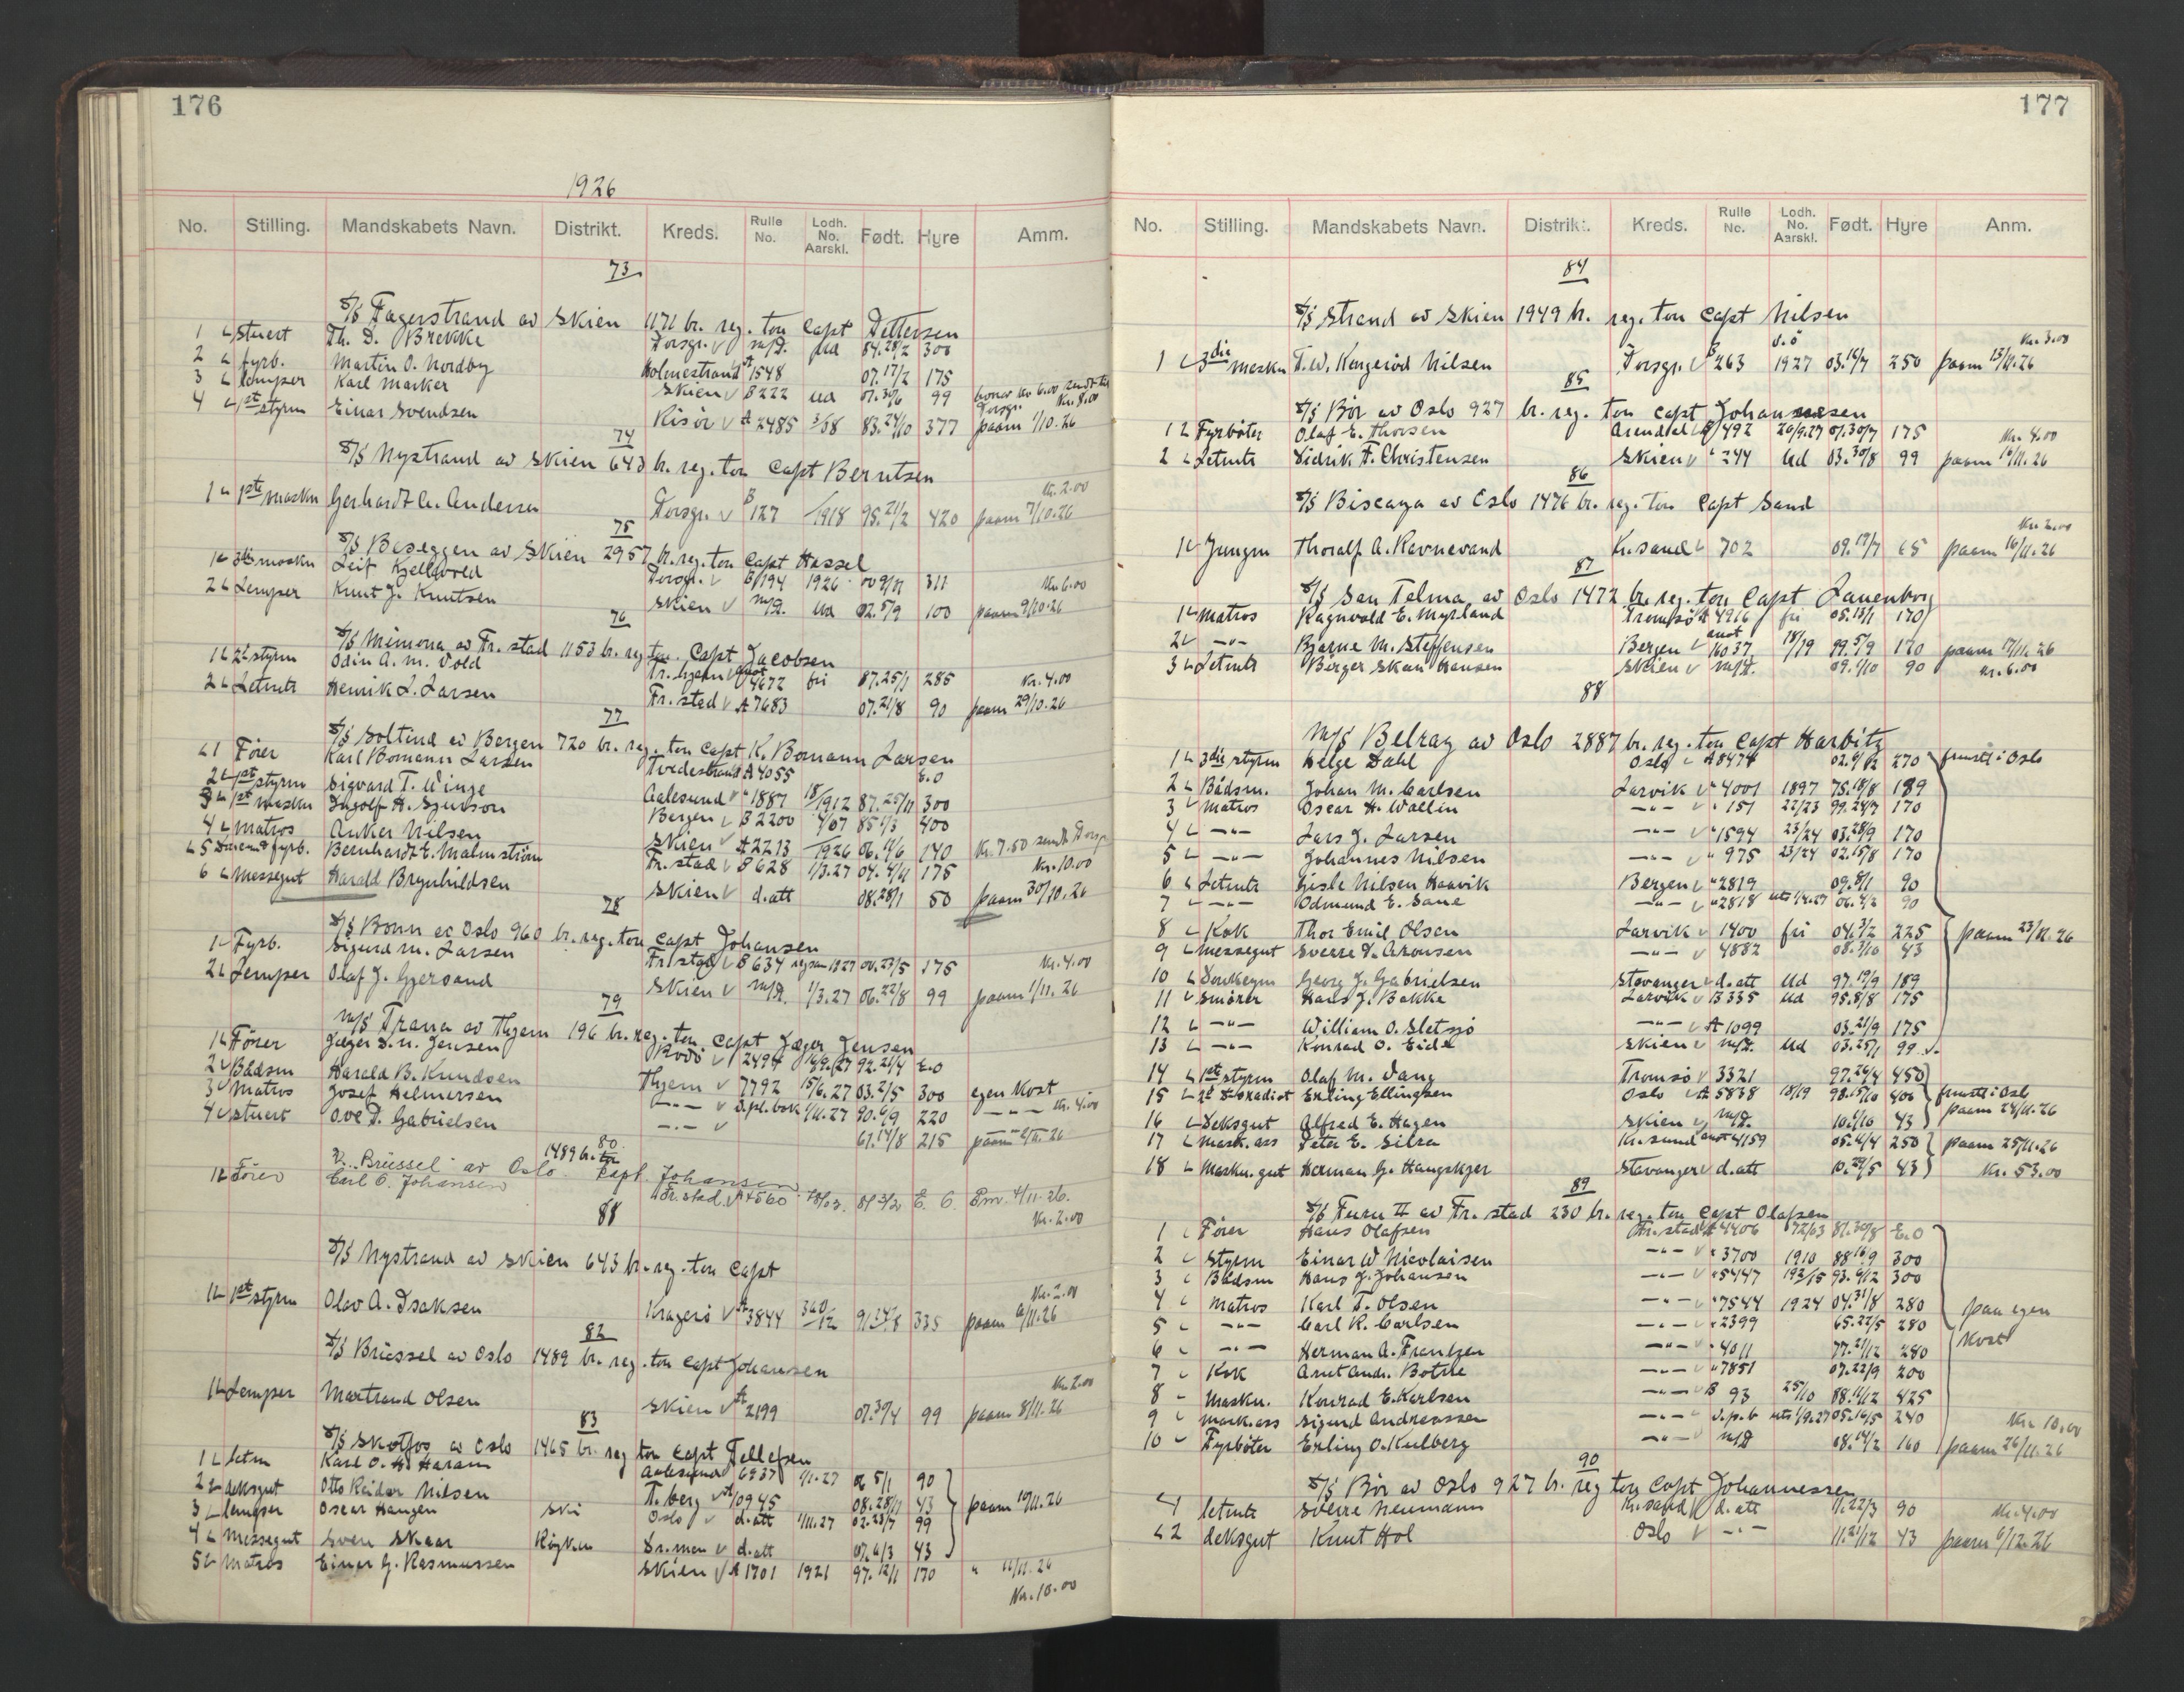 176
1926
No. Stilling. Mandskabets Navn. Distrikt. Kreds. Rulle No. Lodh. No. Aarskl. Født. Hyre Amm.
73
S/S Fagerstrand av Skien 1171 br. reg. ton Capt Pettersen
1 Stuert Th. D. Brekke Porsgr. m/I. Ud 84.28/2 300
2 fyrb. Martin O. Nordby Holmestrand A 1548 07.17/2 175
3 lemper Karl Marker Skien B 222 Ud 07.30/6 99
4 1st styrm Einar Svendsen Risör A 2485 3/58 83.24/10 377 paam 1/10.26 Kr. 8.00
74
S/S Nystrand av Skien 643 br. reg. ton Capt Berntsen
1 1ste maskn Gerhardt A. Andersen Porsgr. B 127 /1918 95.21/2 420 paam 7/10.26 Kr. 2.00
75
S/S Beseggen av Skien 2957 br. reg. ton Capt Hassel
1 3die maskn Leif Kjellevold Porsgr. B/194 1926 00 9/11 311
2 Lemper Knut J. Knutsen Skien m/I. Ud 02.5/9 100 paam 9/10.26 Kr. 6.00
76
S/S Mimona av Fr. stad 1153 br. reg ton. Capt Jacobsen
1 2 styrm Odin A. M. Vold Tr. hjem 4672 fri 87.25/1 285 Kr. 4.00
2 Letmtr Henrik L. Larsen Fr. stad A 7683 07.21/8 90 paam 29/10.26
77
S/S Soltind av Bergen 720 br. reg. ton Capt K. Bomann Larsen
1 Förer Karl Bomann Larsen Tvedestrand A 4055 E.O
2 1st styrm Sigvard T. Winge Aalesund " 1887 18/1912 87.25/11 300
3 1st maskn Ingolf H. Sjurson Bergen B 2200 4/07 85 1/3 400
4 Matros Anker Nilsen Skien A 2213 /1926 06.10/6 140 Kr. 7.50 sendt Porsgr
5 Dæksm & fyrb. Bernhardt E. Malmström Fr. stad B 628 1/3.27 04.4/11 175 Kr. 10.00
6 Messegut Harald Brynhildsen Skien d. att 08.28/1 50 paam 30/10.26
78
S/S Bonn av Oslo 960 br. reg. ton Capt Johansen
1 Fyrb. Sigurd M. Larsen Fr. stad B 634 1927 00.27/5 175 Kr. 4.00
2 Lemper Olaf J. Gjersand Skien m/I. 1/3.27 06.22/8 99 paam 1/11.26
79
M/S Trana av Thjem 196 br. reg. ton. Capt Jæger Jensen
1 Förer Jæger S. N. Jensen Bodö " 2494 16/9.27 92.21/4 E.O
2 Bådsm Harald B. Knudsen Thjem 7792 15/6.27 03.2/5 300 egen Kost
3 Matros Josef Helmersen —"— s.pl. bok 1/11.27 90.6/9 220 —"— Kr. 4.00
4 Stuert Ove D. Gabrielsen —"— 61.14/8 215 paam 2/11.26
80
"Brüssel" av Oslo 1489 br. ton Capt. Johansen
1 Förer Carl O. Johansen Fr. stad. A 4560 81 3/2 E. O. Pm. 4/11.26.
Kr. 2.00
81
S/S Nystrand av Skien 643 br. reg. ton Capt
1 1st styrm Olav A. Isaksen Kragerö A 3844 360/12 91.24/8 335 paam 6/11.26 Kr. 2.00
82
S/S Brüssel av Oslo 1489 br. reg. ton Capt Johansen
1 Lemper Martrand Olsen Skien A 2199 07.30/4 99 paam 8/11.26 Kr. 2.00
83
S/S Skotfos av Oslo 1465 br. reg ton Capt Tellefsen
1 letm Karl O. H. Haram Aalesund 6937 1/1.27 06 5/1 90
2 deksgut Otto Reidar Nilsen T. berg A/10945 08.28/11 43
3 lemper Oscar Haugen Ski Oslo d. att 1/11.27 02.23/7 99 paam 10/11.26
4 Messegut Sven Skaar Röyken Dr.men d. att 07.6/3 43
5 Matros Einar G. Rasmussen Skien A 1701 1921 97.12/11 170 " 11/11.26
Kr. 10.00
177
No. Stilling. Mandskabets Navn. Distrikt. Kreds. Rulle No. Lodh. No. Aarskl. Født. Hyre Anm.
84
S/S Strand av Skien 1949 br. reg. ton Capt Nilsen
1 3die maskn T. W. Kongeröd Nilsen Porsgr. B 263 1927 03.16/7 250 paam 13/11.26 Kr. 3.00
85
S/S Bör av Oslo 927 br. reg. ton Capt Johannesen
1 Fyrböter Olaf E. Thorsen Arendal B/492 26/9.27 01.30/7 175 Kr. 4.00
2 Letmtr Didrik F. Christensen Skien " 244 Ud 03.30/8 99 paam 16/11.26
86
S/S Biscaya av Oslo 1476 br. reg. ton Capt Sand
1 Jungm Thoralf A. Ravnevand Kr. sand 702 09.19/7 65 paam 16/11.26 Kr. 2.00
87
S/S San Telma av Oslo 1472 br. reg. ton Capt Lauenborg
1 Matros Ragnvald E. Myrland Tromsö A 4916 fri 05.13/1 170
2 —"— Bjarne M. Steffensen Bergen anot No 37 18/19 99.5/9 170 paam 17/11.26
3 Letmtr Birger Skau Hansen Skien m/I. 09.1/10 90 Kr. 6.00
88
M/S Belray av Oslo 2887 br. reg. ton Capt Harbitz
1 3die styrm Helge Dahl Oslo A 8474 02.9/12 270
2 Bådsm. Johan M. Carlsen Larvik " 4001 1897 75.18/8 189
3 Matros Oscar H. Wallin —"— " 151 22/23 99.24/7 170
4 —"— Lars J. Larsen —"— " 1594 23/24 03.28/9 170
5 —"— Johannes Nilsen —"— " 975 23/24 02.15/8 170
6 Letmtr Gisle Nilsen Haavik Bergen " 2819 09.8/1 90
7 —"— Odmund E. Sane —"— " 2818 uts 1/4.27 06.4/2 90
8 Kok Thor Emil Olsen Larvik 1400 fri 04.3/2 225 paam 23/11.26
9 Messegut Sverre A. Aronsen —"— 4882 08.3/10 43
10 Donkeym Georg J. Gabrielsen Stavanger d. att Ud 97.19/9 189
11 Smörer Hans J. Bakke Larvik B 335 Ud 95.8/8 175
12 —"— William O. Sletsjö —"— A 1099 03.21/9 175
13 —"— Konrad O. Eide Skien m/I. Ud 03.25/1 99
14 1st styrm Olaf M. Vang Tromsö 3321 97.26/4 450
15 2d st & radiot Erling Ellingsen Oslo A 5838 18/19 98.15/10 406
16 Deksgut Alfred E. Hagen Skien m/I. 10.6/10 43 paam 24/11.26
17 Mask. ass Peter E. Silra Kr. sund anot 4159 05.4/4 250 paam 25/11.26
18 Maskn. gut Herman G. Haugskjer Stavanger d. att 10.29/5 43 Kr. 53.00
89
S/S Furu II av Fr. stad 230 br. reg. ton Capt Olafsen
1 Förer Hans Olafsen Fr. stad A 4406 72/03 81.30/8 E.O
2 Styrm Einar W Nicolaisen —"— " 3700 1910 88 16/9 300
3 Bådsm Hans J. Johansen —"— " 5447 192/15 93.9/12 300
4 Matros Karl T. Olsen —"— " 7544 1924 04.31/8 280 paa egen
5 —"— Carl R. Carlsen —"— " 2399 65.22/5 280 Kost
6 —"— Herman A. Frantzen —"— " 4011 77.21/12 280
7 Kok Arnt Andr. Botne —"— " 7851 07.22/9 200
8 Maskn. Konrad E. Karlsen —"— B 93 25/10 88.11/12 425
9 Mask. ass Sigurd Andreassen —"— s.p.b uts 1/9.27 05.16/5 240 Kr. 18.00
10 Fyrböter Erling O. Kulberg —"— m/I 08.14/2 160 paam 26/11.26
90
S/S Bör av Oslo 927 br. reg ton Capt Johannessen
1 letmtr Sverre Neumann Kr. sand d. att 11.22/3 90 Kr. 4.00
2 deksgut Knut Hol Oslo —"— 11.21/12 43 paam 6/12.26